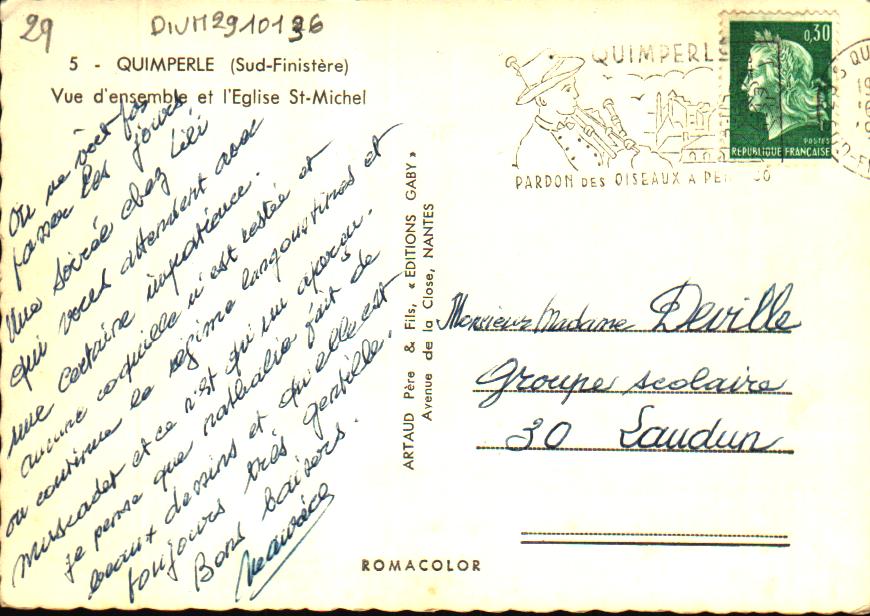 29
DIVM2910136
5 - QUIMPERLE (Sud-Finistère)
Vue d'ensemble et l'Eglise St-Michel
On ne voit pas
passer les jours
Une soirée chez Lili
qui vous attendent avec
une certaine impatience.
Aucune coquille n'est restée et
on continue le régime langoustines et
muscadet et ce n'est qu'un aperçu.
Je pense que nathalie fait de
beaux dessins et qu'elle est
toujours très gentille.
Bons baisers.
ARTAUD Père & Fils, « EDITIONS GABY »
Avenue de la Close, NANTES
ROMACOLOR
QUIMPERLE
PARDON DES OISEAUX A
0,30
POSTES
REPUBLIQUE FRANÇAISE
Monsieur Madame Deville
Groupe scolaire
30 Laudun